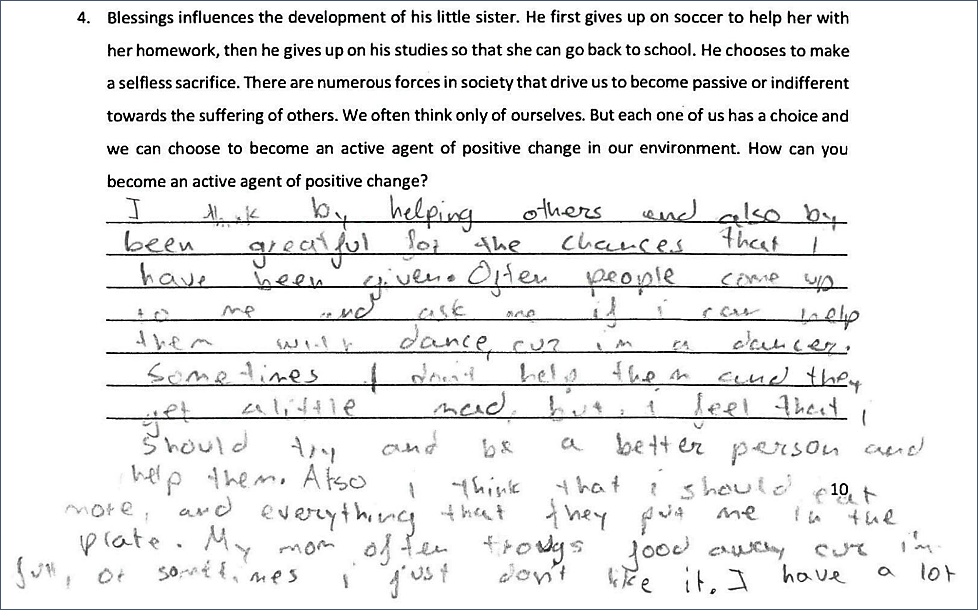 4. Blessings influences the development of his little sister. He first gives up on soccer to help her with
her homework, then he gives up on his studies so that she can go back to school. He chooses to make
a selfless sacrifice. There are numerous forces in society that drive us to become passive or indifferent
towards the suffering of others. We often think only of ourselves. But each one of us has a choice and
we can choose to become an active agent of positive change in our environment. How can you
become an active agent of positive change?
I think by helping others and also by
been greatful for the chances that I
have been given. Often people come up
to me and ask me if i can help
them with dance, cuz im a dancer.
Sometimes I don't help them and they
get alittle mad, but, i feel that i
should try and be a better person and
help them. Also i think that i should eat
10
more, and everything that they put me in the
plate. My mom often trowgs food away cuz i'm
full, or sometimes i just don't like it. I have a lot